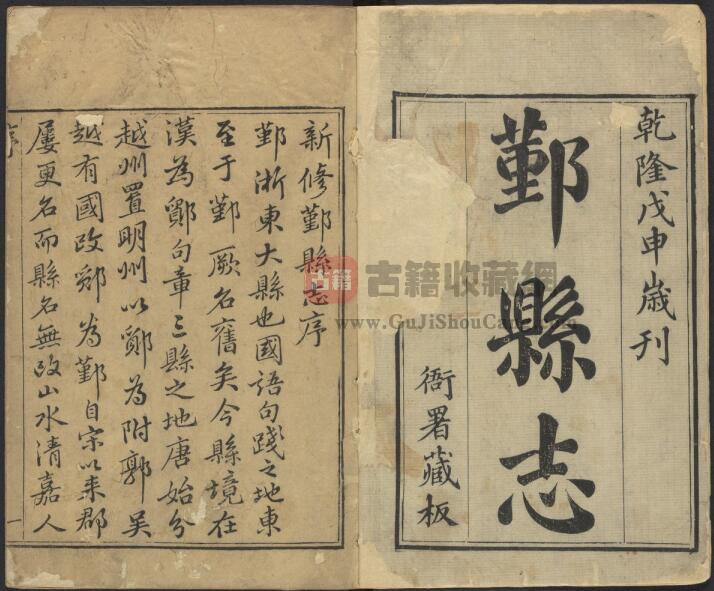 乾隆戊申歲刊
鄞縣志
衙署藏板
新修鄞縣志序
鄞浙東大縣也國語句踐之地東
至于鄞厥名舊矣今縣境在
漢為鄮句章三縣之地唐始分
越州置明州以鄮為附郭吳
越有國改鄮為鄞自宋以来郡
屢更名而縣名無改山水清嘉人
序
一
古籍
古籍收藏網
www.GuJiShouCa